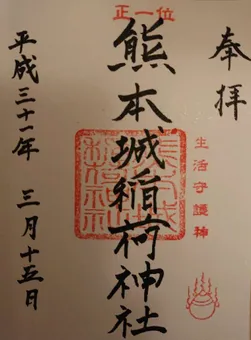 奉拝
生活守護神
正一位
熊本城稲荷神社
平成三十一年 三月十五日